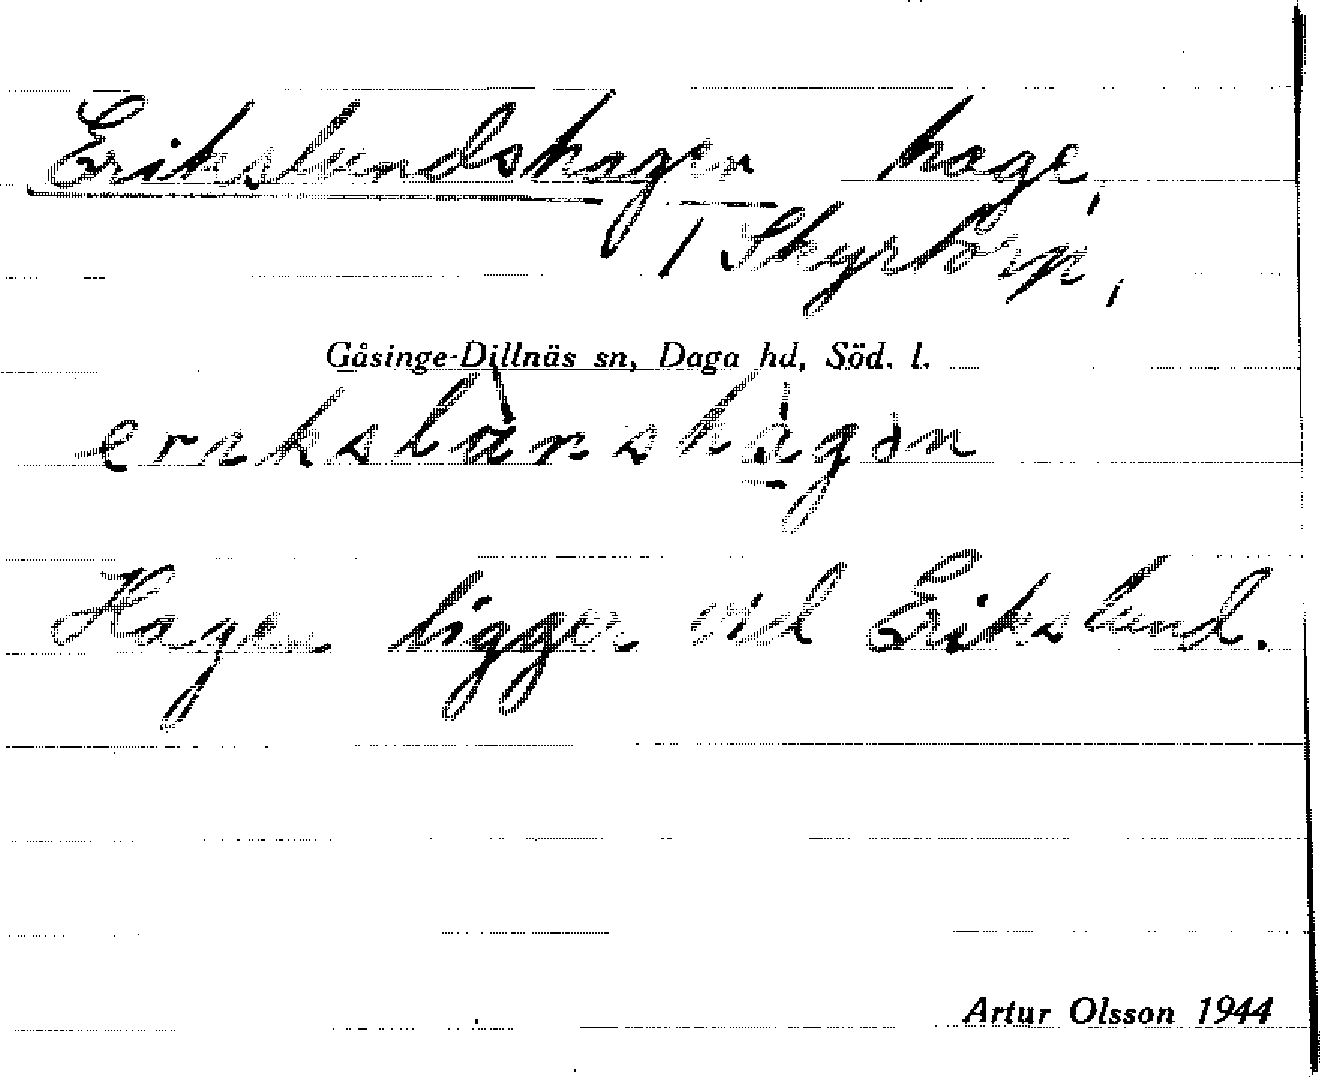 Erikslundshagen hage,
/ Skyrtorp,
Gåsinge-Dillnäs sn, Daga hd, Söd. l.
Hagen ligger vid Erikslund.
Artur Olsson 1944